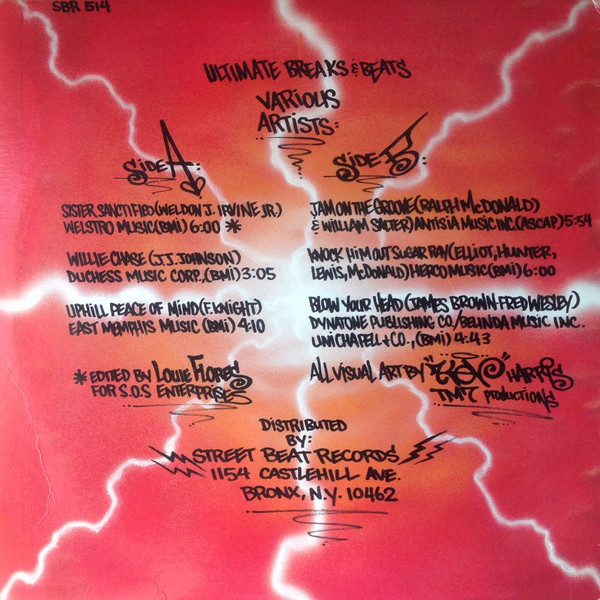 SBR 514
ULTIMATE BREAKS & BEATS
VARIOUS
ARTISTS:
SIDE A:
SISTER SANCTIFIED (WELDON J. IRVINE JR.)
WELSTRO MUSIC (BMI) 6:00 *
WILLIE CHASE (J.J. JOHNSON)
DUCHESS MUSIC CORP., (BMI) 3:05
UPHILL PEACE OF MIND (F. KNIGHT)
EAST MEMPHIS MUSIC (BMI) 4:10
* EDITED BY LOUIE FLORES
FOR S.O.S ENTERPRISES
SIDE B:
JAM ON THE GROOVE (RALPH McDONALD)
& WILLIAM SALTER) ANTISIA MUSIC INC. (ASCAP) 5:54
KNOCK HIM OUT SUGAR RAY (ELLIOT, HUNTER,
LEWIS, McDONALD) HERCO MUSIC (BMI) 6:00
BLOW YOUR HEAD (JAMES BROWN-FRED WESLEY)
DYNATONE PUBLISHING CO./BELINDA MUSIC INC.
UNICHAPELL + CO., (BMI) 4:43
ALL VISUAL ART BY "KEV" HARRIS
TM7 PRODUCTIONS
DISTRIBUTED
BY:
STREET BEAT RECORDS
1154 CASTLEHILL AVE.
BRONX, N.Y. 10462